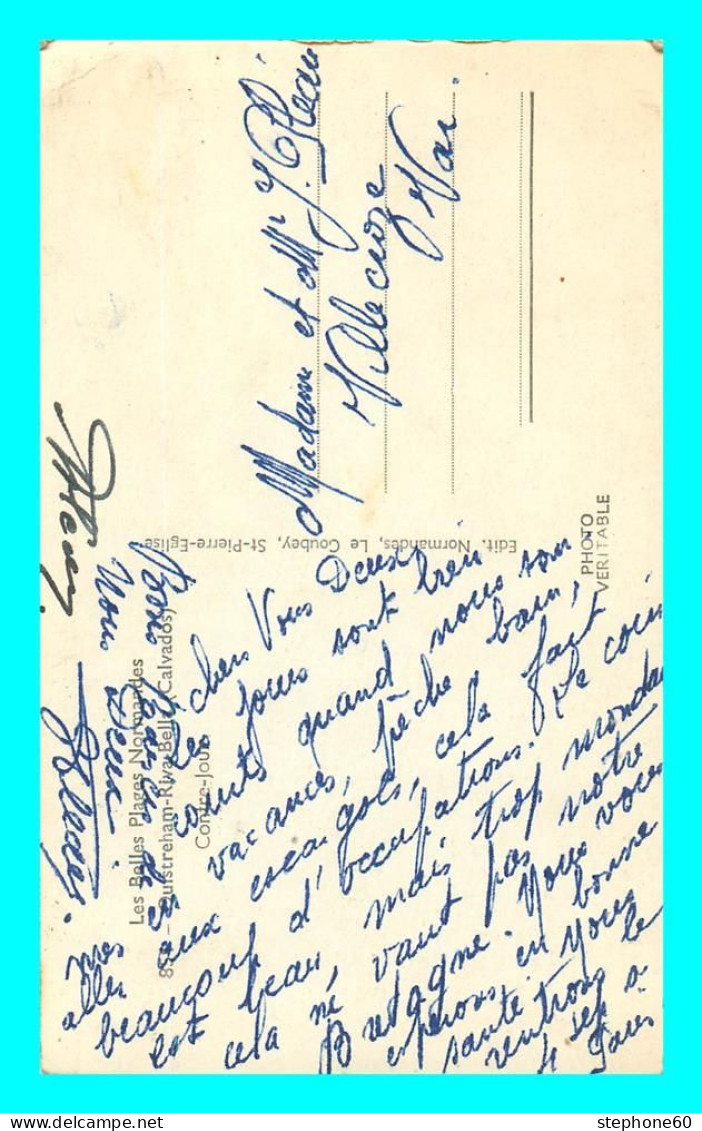 Les Belles Plages Normandes
Ouistreham-Riva-Bella (Calvados)
Contre-Jour
Edit. Normandes, Le Goubey, St-Pierre-Eglise
PHOTO
VERITABLE
Madame et Mr
Villecroze
Var.
chers Vous Deux
Les jours sont bien
courts quand nous som
mes en vacances, pêche bain,
aller aux escargots, cela fait
beaucoup d'occupations. Le coin
est beau mais trop mondain
cela ne vaut pas notre
Bretagne. Nous vous
espérons en bonne
santé. Nous
rentrons le
4 sep à
Paris
Bons Baisers de
Nous Deux
stephone60